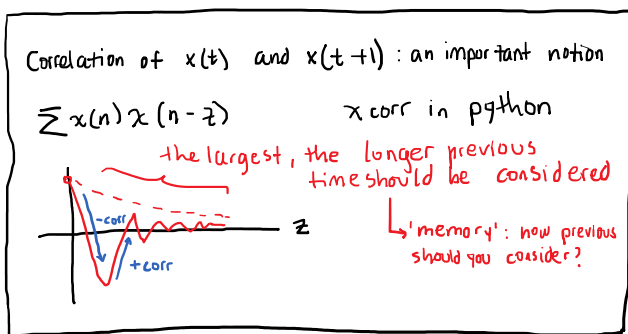 Correlation of x(t) and x(t+1) : an important notion
Σ x(n) x (n - z)
x corr in python
the largest, the longer previous
time should be considered
-corr
+corr
z
'memory' : how previous
should you consider?